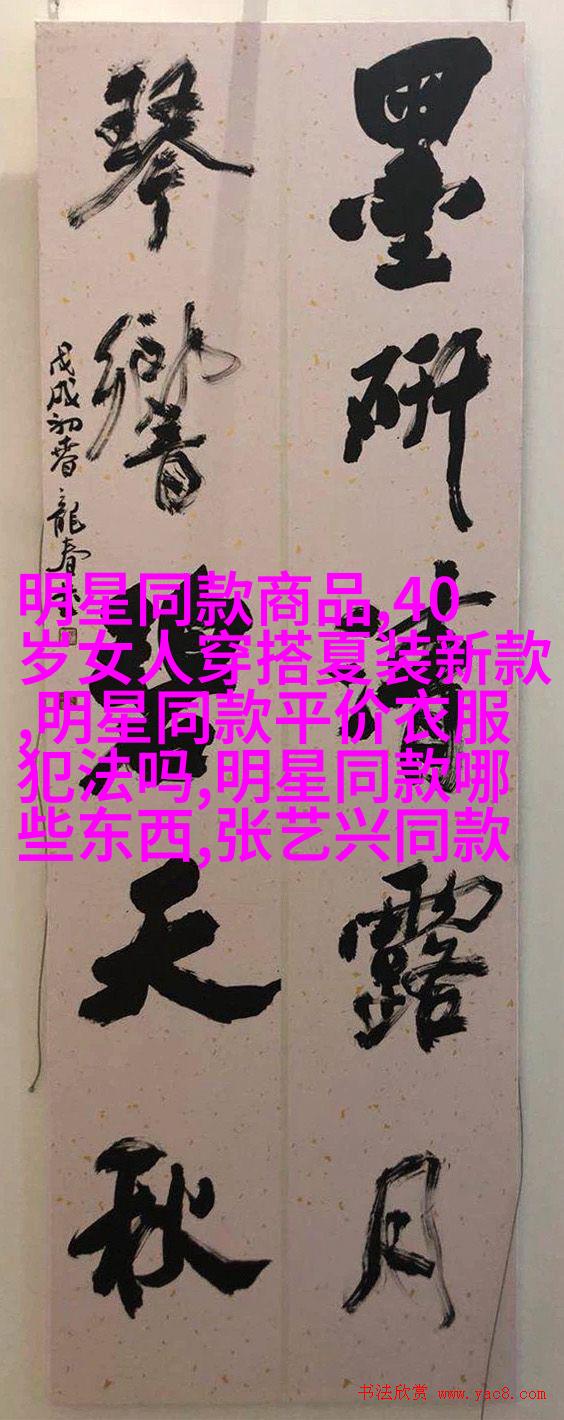 墨研清露月
琴響碧天秋
戊戌初春 龍春
明星同款商品,40
岁女人穿搭夏装新款
,明星同款平价衣服
犯法吗,明星同款哪
些东西,张艺兴同款
书法欣赏 www.yac8.com